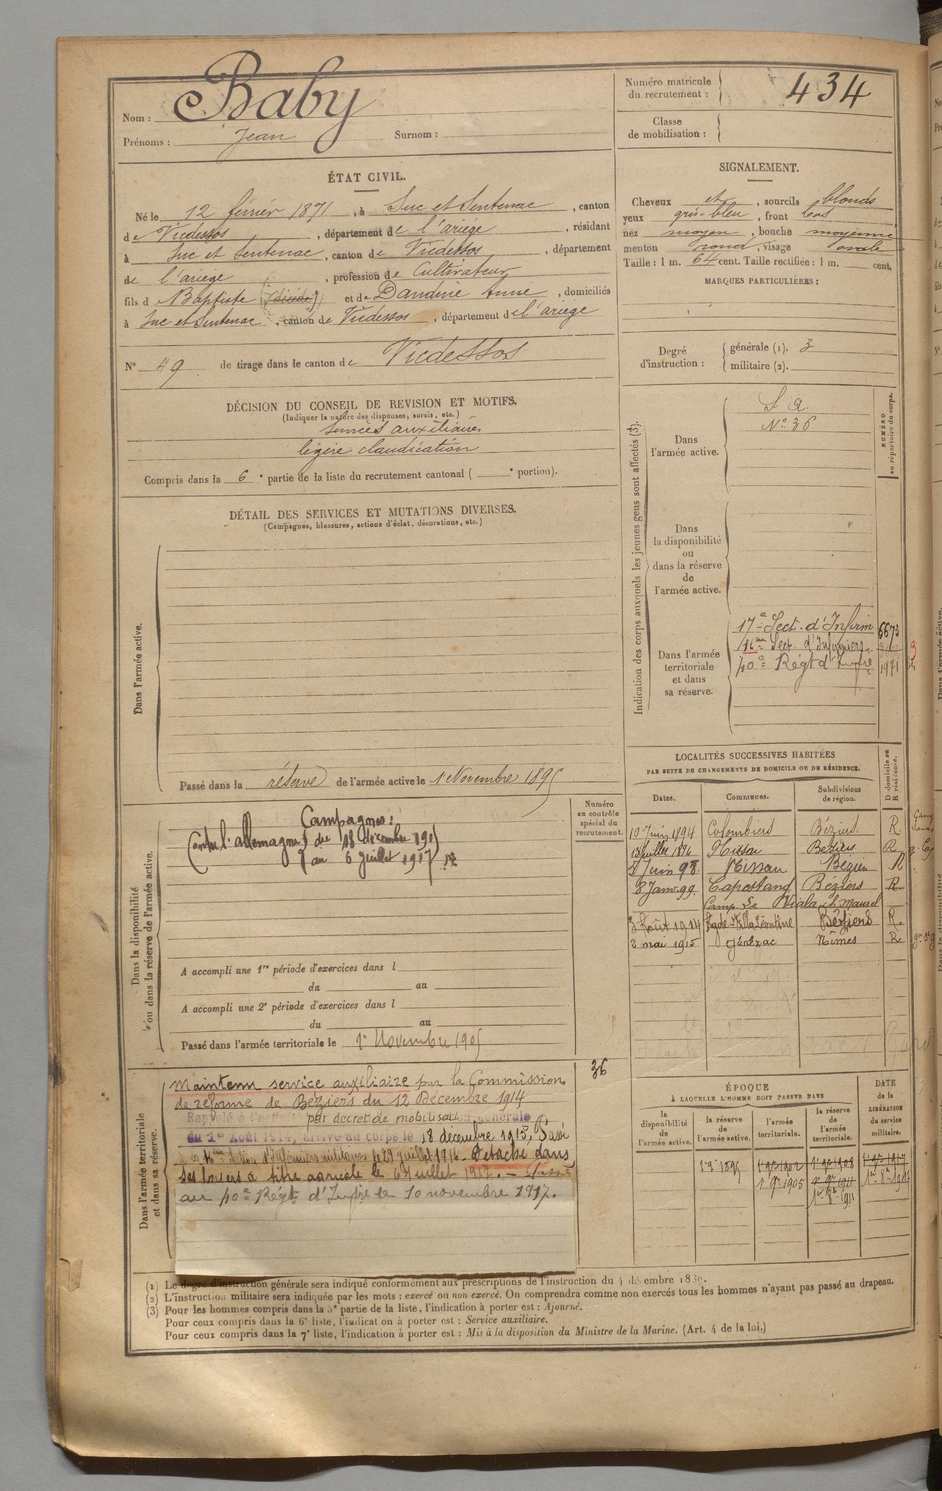 Nom : Baby
Prénoms : Jean Surnom :
Numéro matricule du recrutement : 434
Classe de mobilisation :
ÉTAT CIVIL.
Né le 12 février 1871, à Suc et Sentenac, canton
de Vicdessos, département de l'ariège, résidant
à Suc et Sentenac, canton de Vicdessos, département
de l'ariège, profession de Cultivateur
fils de Baptiste (décédé) et de Dandine Anne, domiciliés
à Suc et Sentenac, canton de Vicdessos, département de l'ariège
N° 49 de tirage dans le canton de Vicdessos
SIGNALEMENT.
Cheveux et, sourcils blonds
yeux gris-bleu, front bas
nez moyen, bouche moyenne
menton rond, visage ovale
Taille : 1 m. 64 cent. Taille rectifiée : 1 m. cent.
MARQUES PARTICULIÈRES :
Degré d'instruction : générale (1). 3
militaire (2).
DÉCISION DU CONSEIL DE REVISION ET MOTIFS.
(Indiquer la nature des dispenses, sursis, etc.)
services auxiliaires
légère claudication
Compris dans la 6e partie de la liste du recrutement cantonal ( e portion).
DÉTAIL DES SERVICES ET MUTATIONS DIVERSES.
(Campagnes, blessures, actions d'éclat, décorations, etc.)
Dans l'armée active.
Passé dans la réserve de l'armée active le 1 Novembre 1895
Indication des corps auxquels les jeunes gens sont affectés (3).
NUMÉRO au répertoire du corps.
Dans l'armée active.
S. A.
N° 36
Dans la disponibilité ou dans la réserve de l'armée active.
Dans l'armée territoriale et dans sa réserve.
17e Sect. d'Infirm 6673
16e Sect. d'Infirmiers
40e Régt d'Infrie 1971
LOCALITÉS SUCCESSIVES HABITÉES
PAR SUITE DE CHANGEMENTS DE DOMICILE OU DE RÉSIDENCE.
Dates. Communes. Subdivisions de région. D domicile ou R résidence.
10 Juin 1894 Colombiers Béziers. R
13 Juillet 1896 Nissan Béziers R
Juin 98 Nissan Bézier R
8 Janv. 99 Capestang Béziers R
3 Août 1914 Béziers R.
2 mai 1915 Générac Nimes R
Dans la disponibilité ou dans la réserve de l'armée active.
Numéro au contrôle spécial du recrutement.
Campagnes :
Contre l'allemagne du 18 décembre 1915
au 6 juillet 1917
A accompli une 1re période d'exercices dans l
du au
A accompli une 2e période d'exercices dans l
du au
Passé dans l'armée territoriale le 1er Novembre 1905
36
Dans l'armée territoriale et dans sa réserve.
Maintenu service auxiliaire par la Commission
de réforme de Béziers du 12 Décembre 1914
Rappelé à l'activité par décret de mobilisation générale
du 1er Août 1914, arrivé au corps le 18 décembre 1915, Passé
à la 16e Section d'Infirmiers militaires le 29 juillet 1916. Détaché dans
ses foyers à titre agricole le 6 juillet 1917. — Passé
au 40e Régt d'Infrie le 10 novembre 1917.
ÉPOQUE
À LAQUELLE L'HOMME DOIT PASSER DANS
la disponibilité de l'armée active. la réserve de l'armée active. l'armée territoriale. la réserve de l'armée territoriale. DATE de la LIBÉRATION du service militaire.
(1) Le degré d'instruction générale sera indiqué conformément aux prescriptions de l'instruction du 4 décembre 1889.
(2) L'instruction militaire sera indiquée par les mots : exercé ou non exercé. On comprendra comme non exercés tous les hommes n'ayant pas passé au drapeau.
(3) Pour les hommes compris dans la 5e partie de la liste, l'indication à porter est : Ajourné.
Pour ceux compris dans la 6e liste, l'indication à porter est : Service auxiliaire.
Pour ceux compris dans la 7e liste, l'indication à porter est : Mis à la disposition du Ministre de la Marine. (Art. 4 de la loi.)